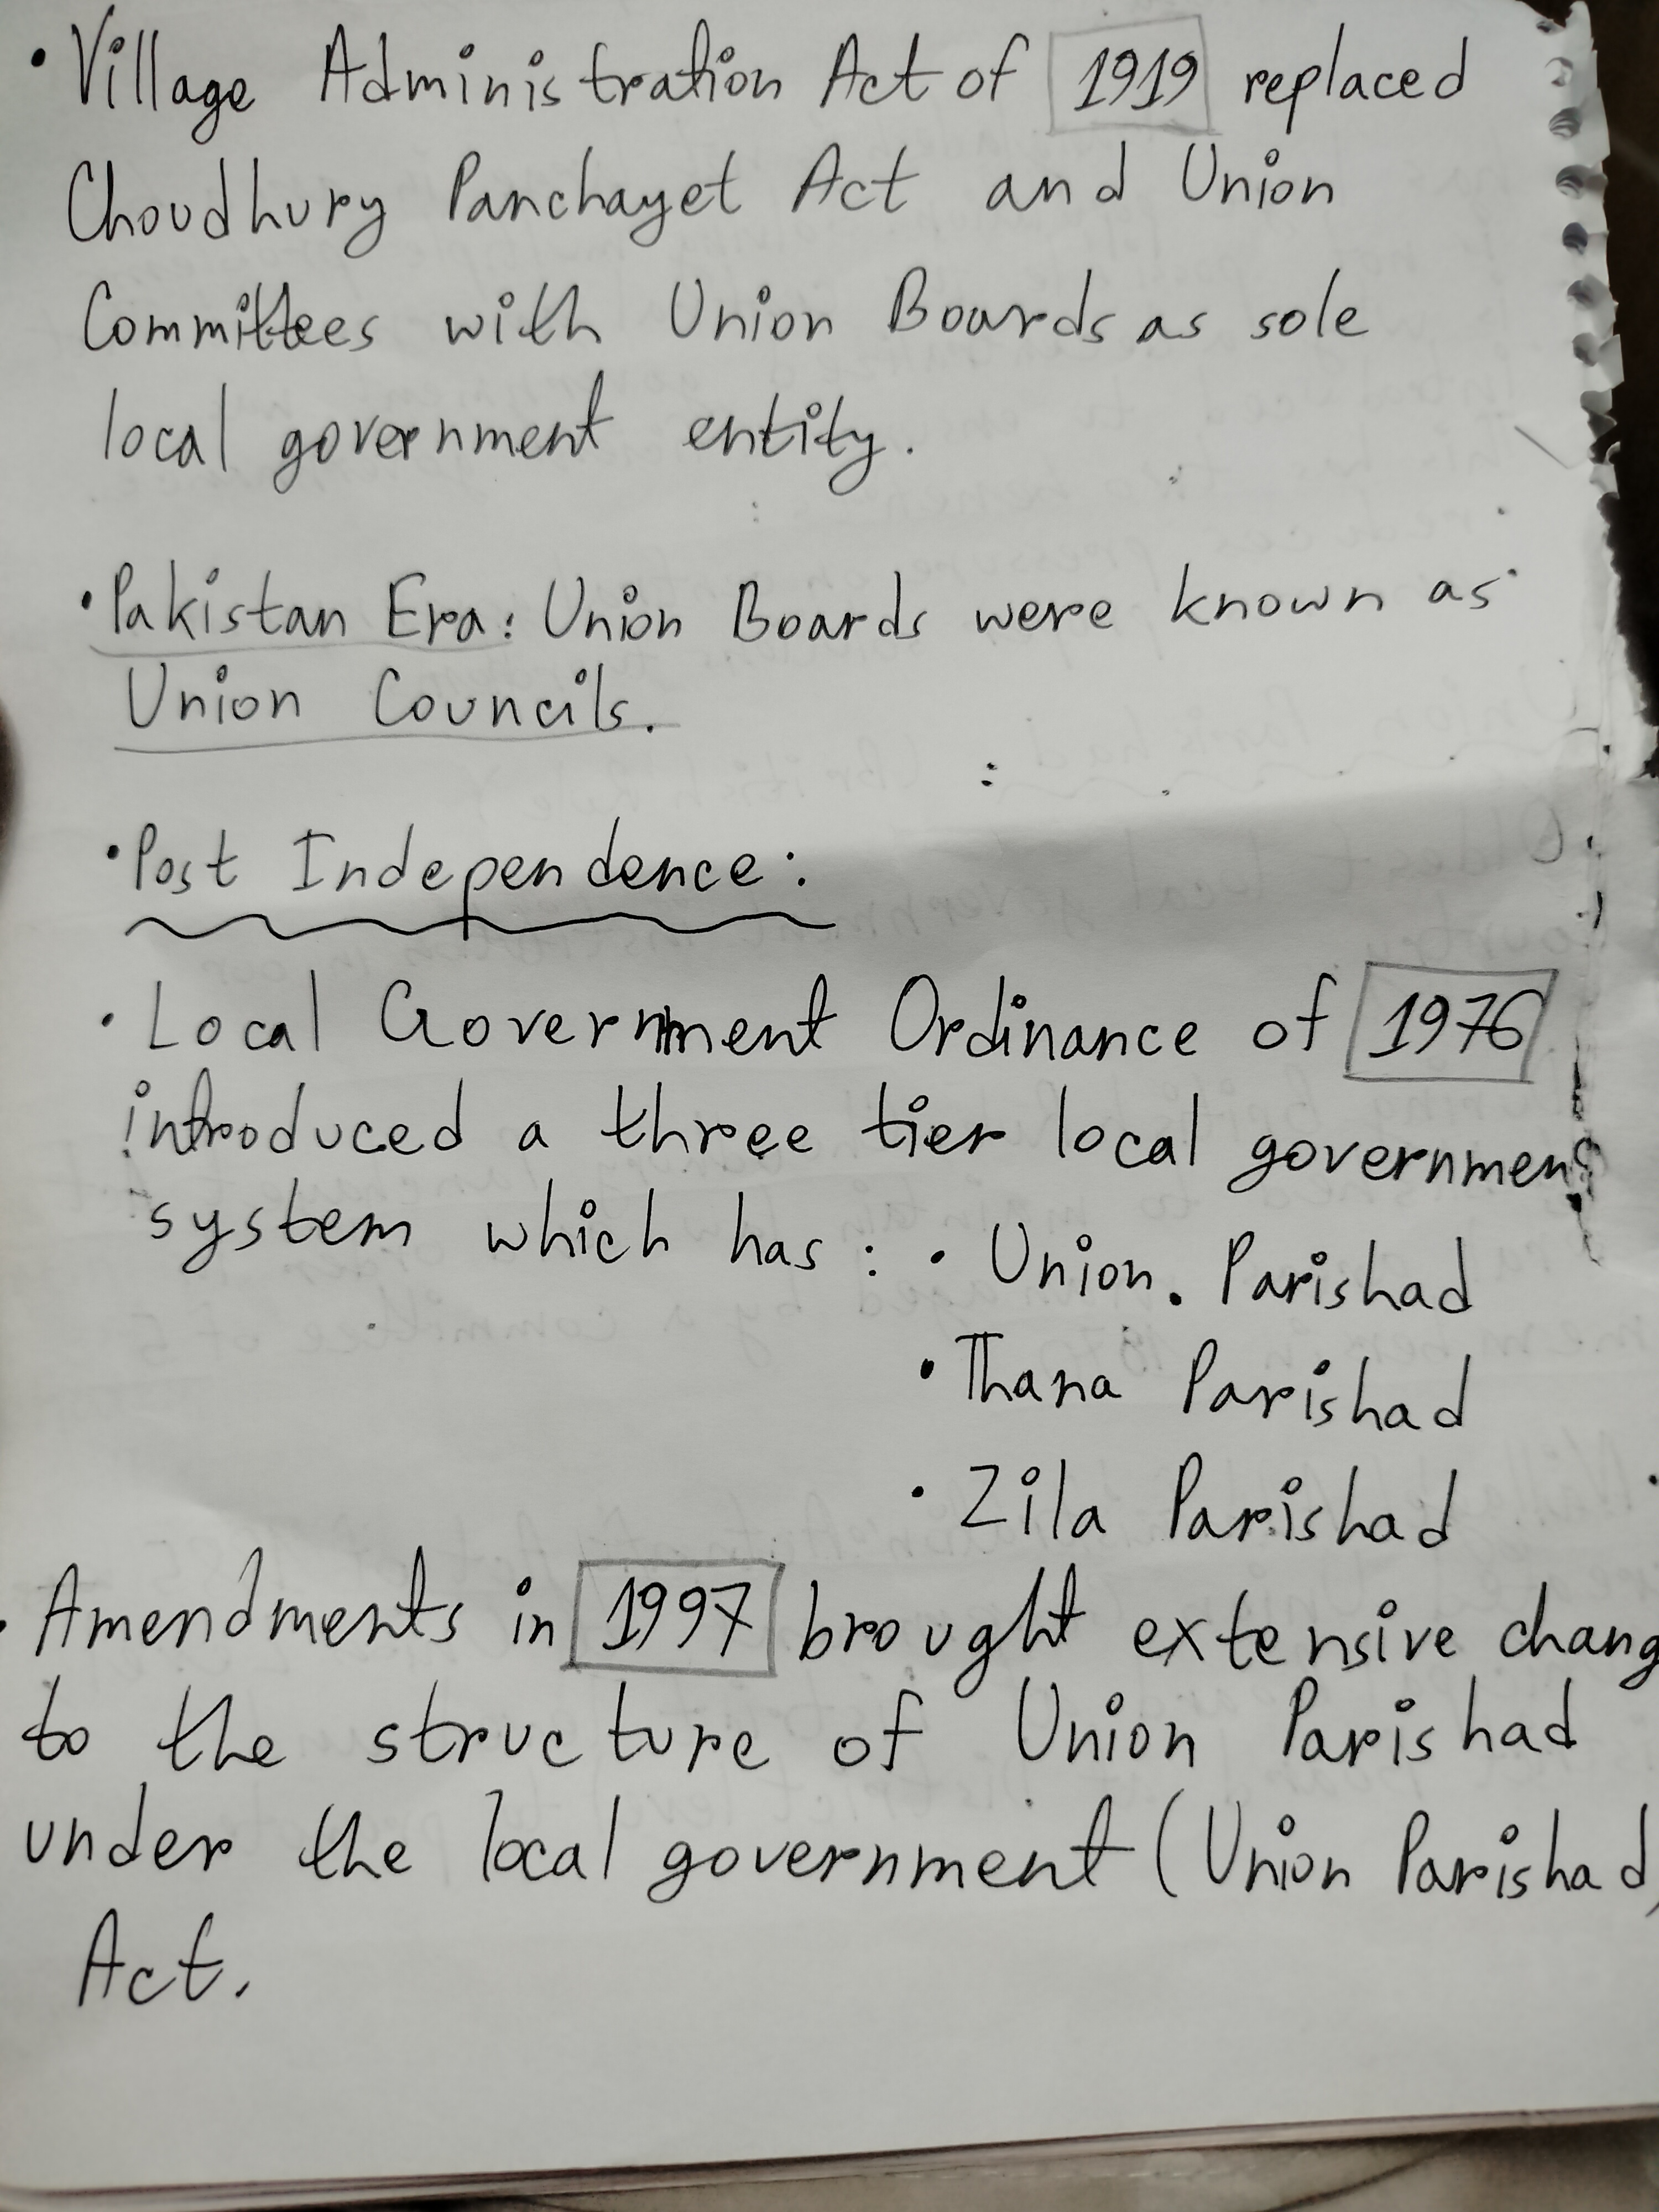 • Village Administration Act of 1919 replaced
Choudhury Panchayet Act and Union
Committees with Union Boards as sole
local government entity.
• Pakistan Era: Union Boards were known as
Union Councils.
• Post Independence:
• Local Government Ordinance of 1976
introduced a three tier local government
system which has: • Union. Parishad
• Thana Parishad
• Zila Parishad
• Amendments in 1997 brought extensive chang
to the structure of Union Parishad
under the local government (Union Parishad)
Act.